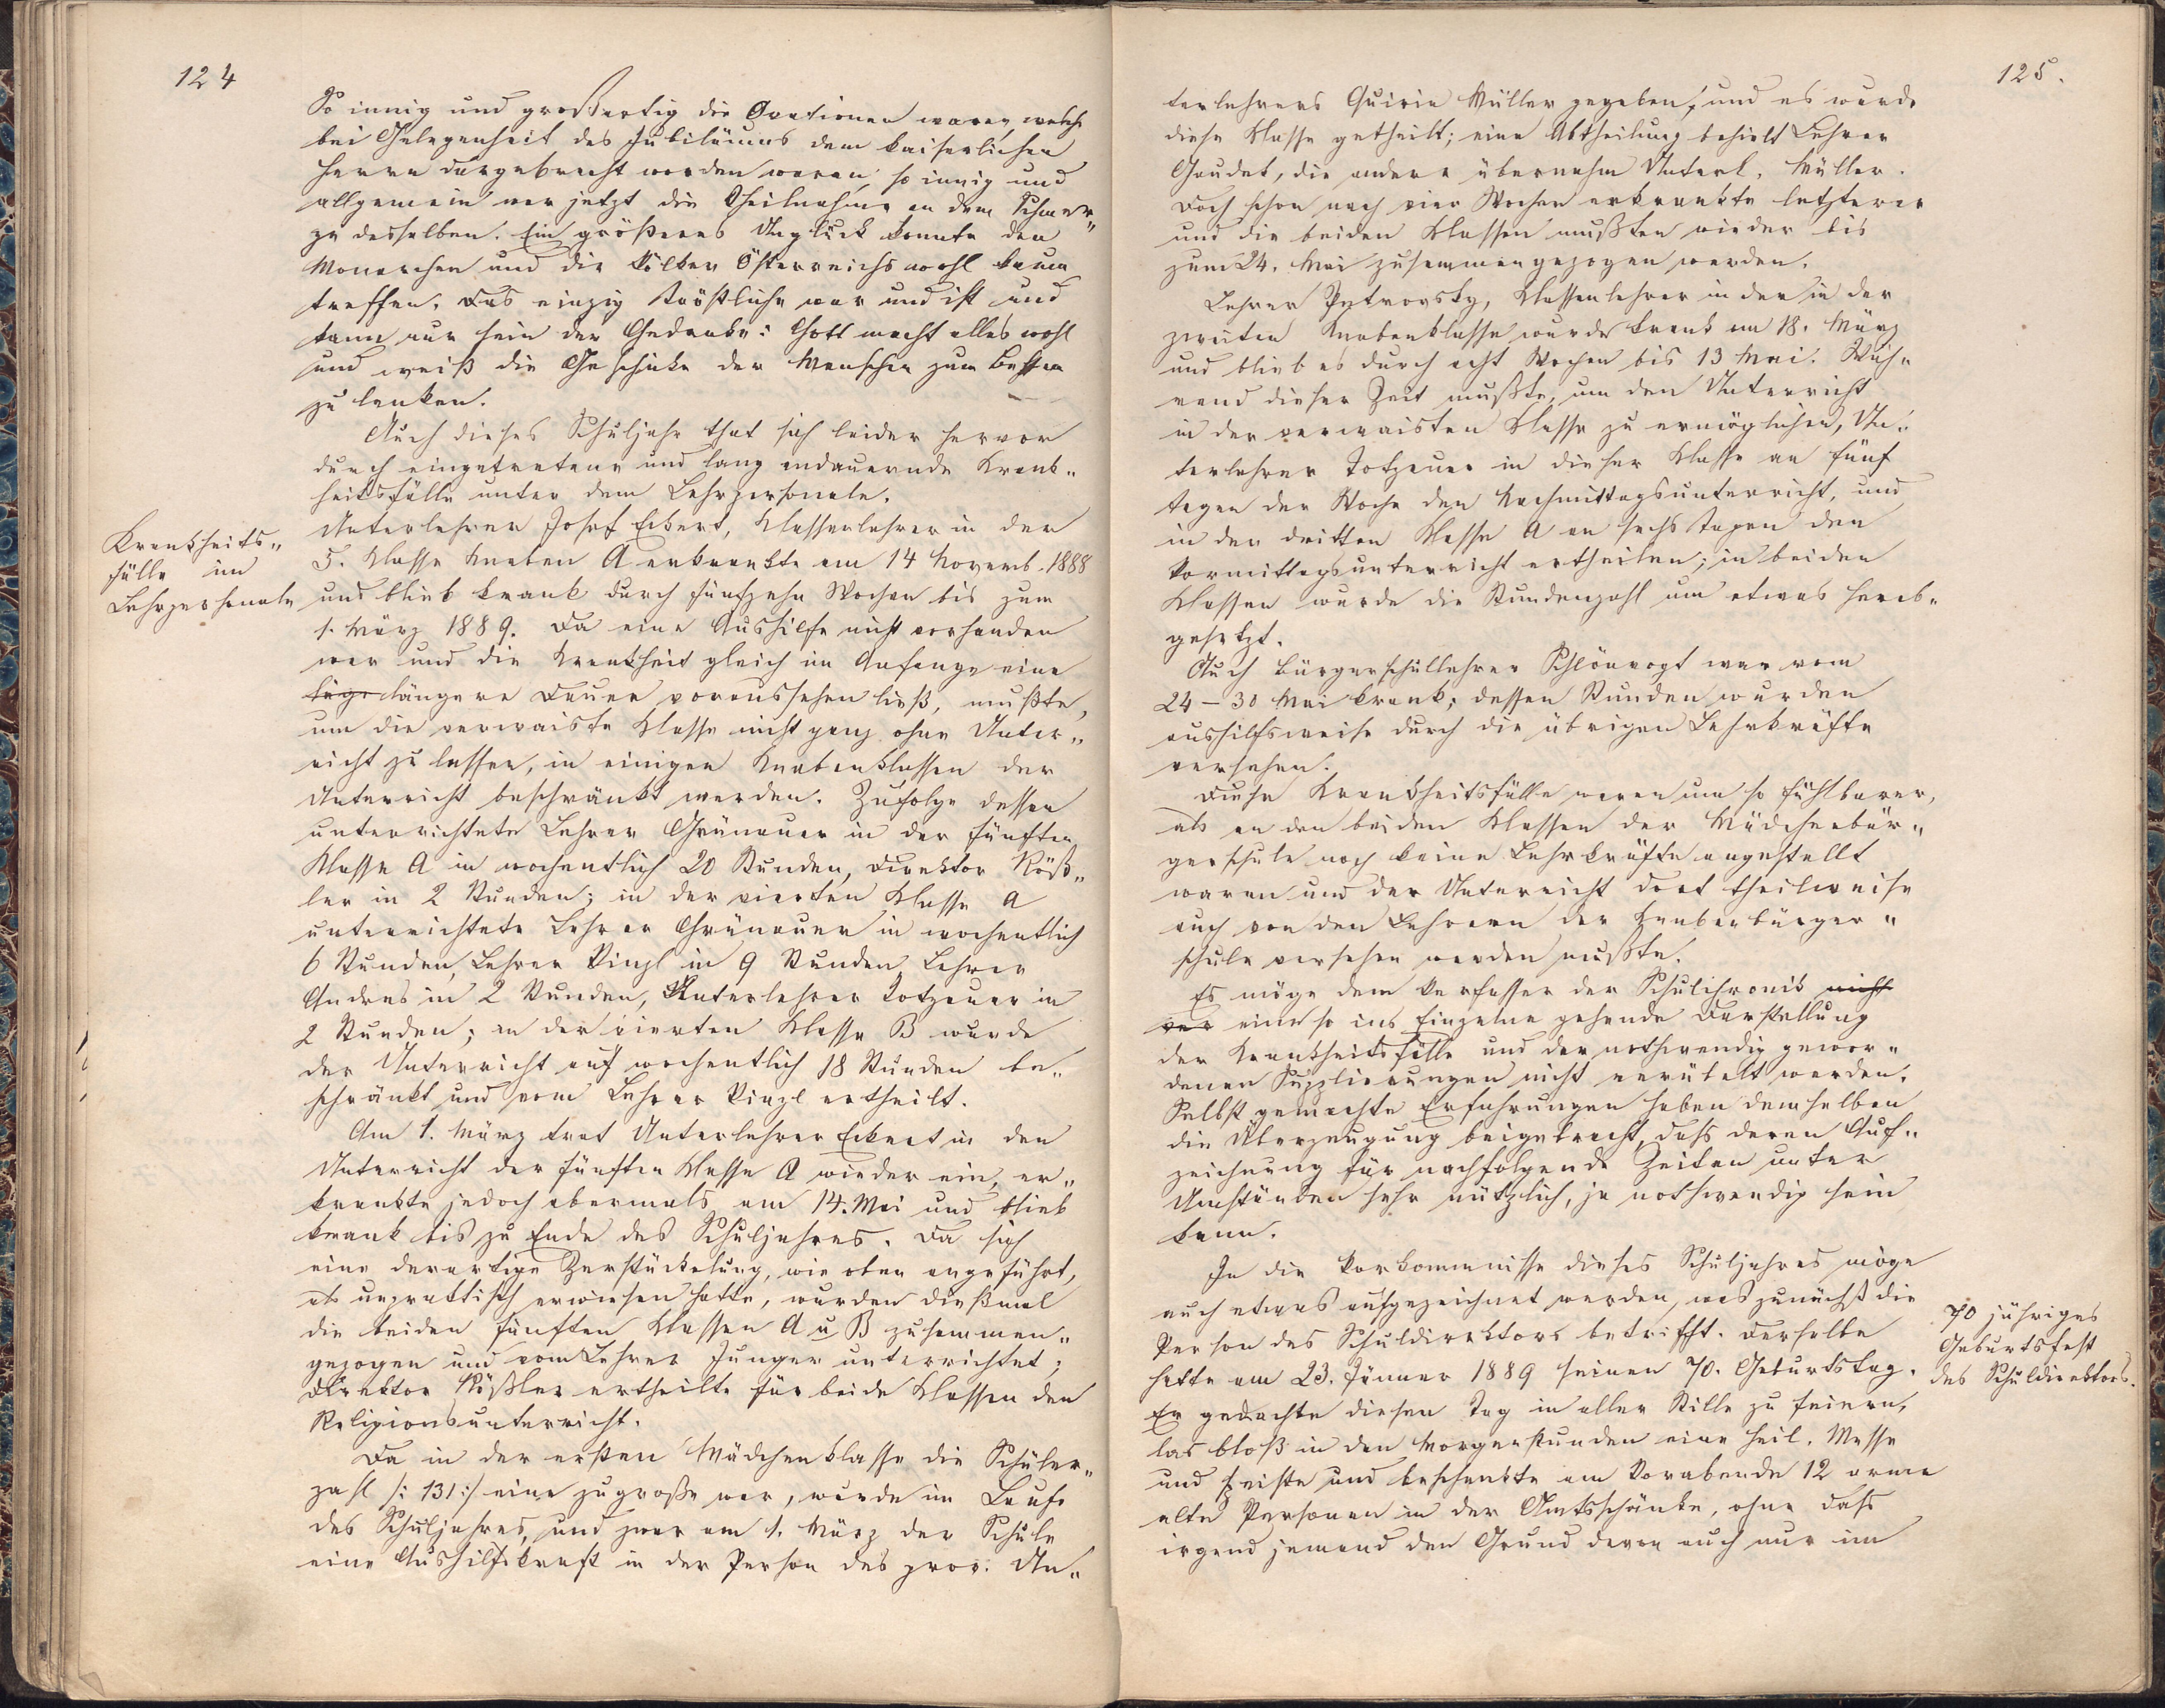 124
So innig und großartig die Ovationen waren, welche
bei Gelegenheit des Jubiläums dem kaiserlichen
Herrn dargebracht worden waren, so innig und
allgemein war jetzt die Theilnahme an dem Schmer„
ze desselben. Ein größeres Unglück konnte den
Monarchen und die Völker Österreichs wohl kaum
treffen. Das einzig Tröstliche war und ist und
kann nur sein der Gedanke: Gott macht alles wohl
und weiß die Geschicke der Menschen zum Besten
zu lenken.
Auch dieses Schuljahr that sich leider hervor
durch eingetretene und lang andauernde Krank„
heitsfälle unter dem Lehrpersonale.
Krankheits„
fälle im
Lehrpersonale
Unterlehrer Josef Eckert, Klassenlehrer in der
5. Klasse Knaben A erkrankte am 14 Novemb. 1888
und blieb krank durch fünfzehn Wochen bis zum
1. März 1889. Da eine Aushilfe nicht vorhanden
war und die Krankheit gleich im Anfange eine
längere Dauer voraussehen ließ, mußte,
um die verwaiste Klasse nicht ganz ohne Unter„
richt zu lassen, in einigen Knabenklassen der
Unterricht beschränkt werden. Zufolge dessen
unterrichtete Lehrer Grünauer in der fünften
Klasse A in wochentlich 20 Stunden, Direktor Röß„
ler in 2 Stunden; in der vierten Klasse A
unterrichtete Lehrer Grünauer in wochentlich
6 Stunden, Lehrer Kinzl in 9 Stunden, Lehrer
Andres in 2 Stunden, Unterlehrer Totzauer in
2 Stunden; in der vierten Klasse B wurde
der Unterricht auf wochentlich 18 Stunden be„
schränkt und vom Lehrer Kinzl ertheilt.
Am 1. März trat Unterlehrer Eckert in den
Unterricht der fünften Klasse A wieder ein, er„
krankte jedoch abermals am 14. Mai und blieb
krank bis zu Ende des Schuljahres. Da sich
eine derartige Zerstückelung, wie oben angeführt,
als unpraktisch erwiesen hatte, wurden dießmal
die beiden fünften Klassen A u B zusammen„
gezogen und vom Lehrer Junger unterrichtet;
Direktor Rößler ertheilte für beide Klassen den
Religionsunterricht.
Da in der ersten Mädchenklasse die Schüler„
zahl /: 131 :/ eine zu große war, wurde im Laufe
des Schuljahres, und zwar am 1. März der Schule
eine Aushilfskraft in der Person des prov. Un„
125.
terlehrers Quirin Müller gegeben, und es wurde
diese Klasse getheilt; eine Abtheilung behielt Lehrer
Gaudet, die andere übernahm Unterl. Müller.
Doch schon nach vier Wochen erkrankte letzterer
und die beiden Klassen mußten wieder bis
zum 24. Mai zusammengezogen werden.
Lehrer Petrovsky, Klassenlehrer in der in der
zweiten Knabenklasse wurde krank am 18. März
und blieb es durch acht Wochen bis 13 Mai. Wäh„
rend dieser Zeit mußte, um den Unterricht
in der verwaisten Klasse zu ermöglichen, Un„
terlehrer Totzauer in dieser Klasse an fünf
Tagen der Woche den Nachmittagsunterricht, und
in der dritten Klasse A an sechs Tagen den
Vormittagsunterricht ertheilen; in beiden
Klassen wurde die Stundenzahl um etwas herab„
gesetzt.
Auch Bürgerschullehrer Schönvogt war vom
24 – 30 Mai krank; dessen Stunden wurden
aushilfsweise durch die übrigen Lehrkräfte
versehen.
Diese Krankheitsfälle waren um so fühlbarer,
als an den beiden Klassen der Mädchenbür„
gerschule noch keine Lehrkräfte angestellt
waren und der Unterricht dort theilweise
auch von den Lehrern der Knabenbürger„
schule versehen werden mußte.
Es möge dem Verfasser der Schulchronik nicht
eine so ins Einzelne gehende Darstellung
der Krankheitsfälle und der nothwendig gewor„
denen Supplierungen nicht verübelt werden.
Selbst gemachte Erfahrungen haben demselben
die Überzeugung beigebracht, dass deren Auf„
zeichnung für nachfolgende Zeiten unter
Umständen sehr nützlich, ja nothwendig sein
kann.
In die Vorkommnisse dieses Schuljahres möge
auch etwas aufgezeichnet werden, was zunächst die
Person des Schuldirektors betrifft. Derselbe
hatte am 23. Jänner 1889 seinen 70. Geburtstag.
70 jähriges
Geburtsfest
des Schuldirektors.
Er gedachte diesen Tag in aller Stille zu feiern,
las bloß in den Morgenstunden eine heil. Messe
und speiste und beschenkte am Vorabende 12 arme
alte Personen in der Amtsschänke, ohne dass
irgend jemand den Grund davon auch nur im